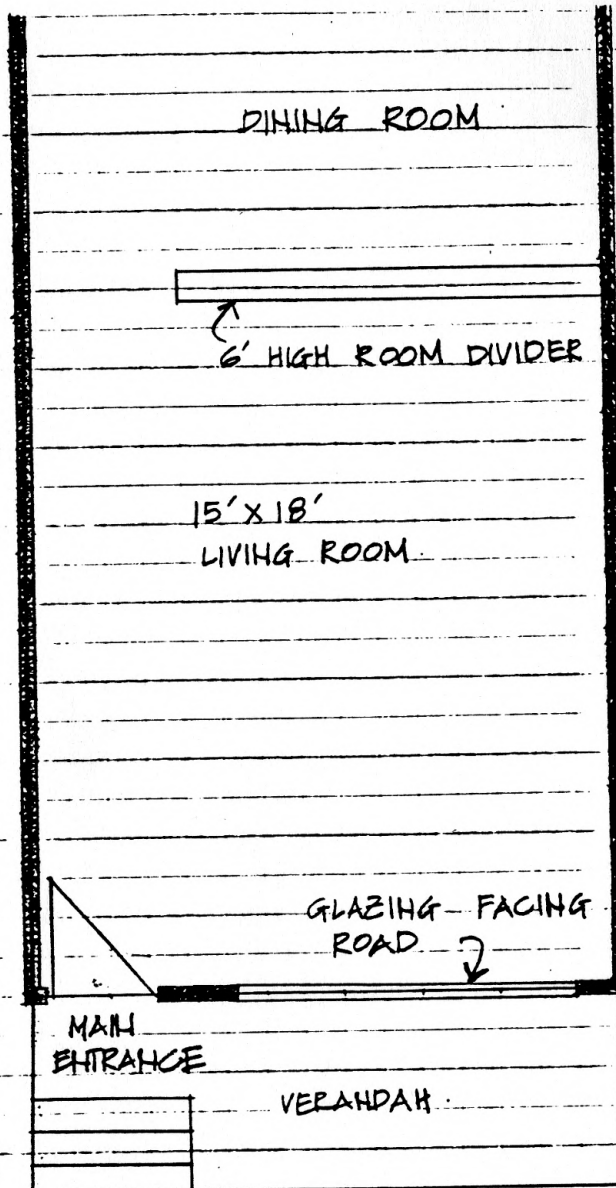 DINING ROOM
6' HIGH ROOM DIVIDER
15' X 18'
LIVING ROOM.
GLAZING FACING
ROAD
MAIN
ENTRANCE
VERANDAH.